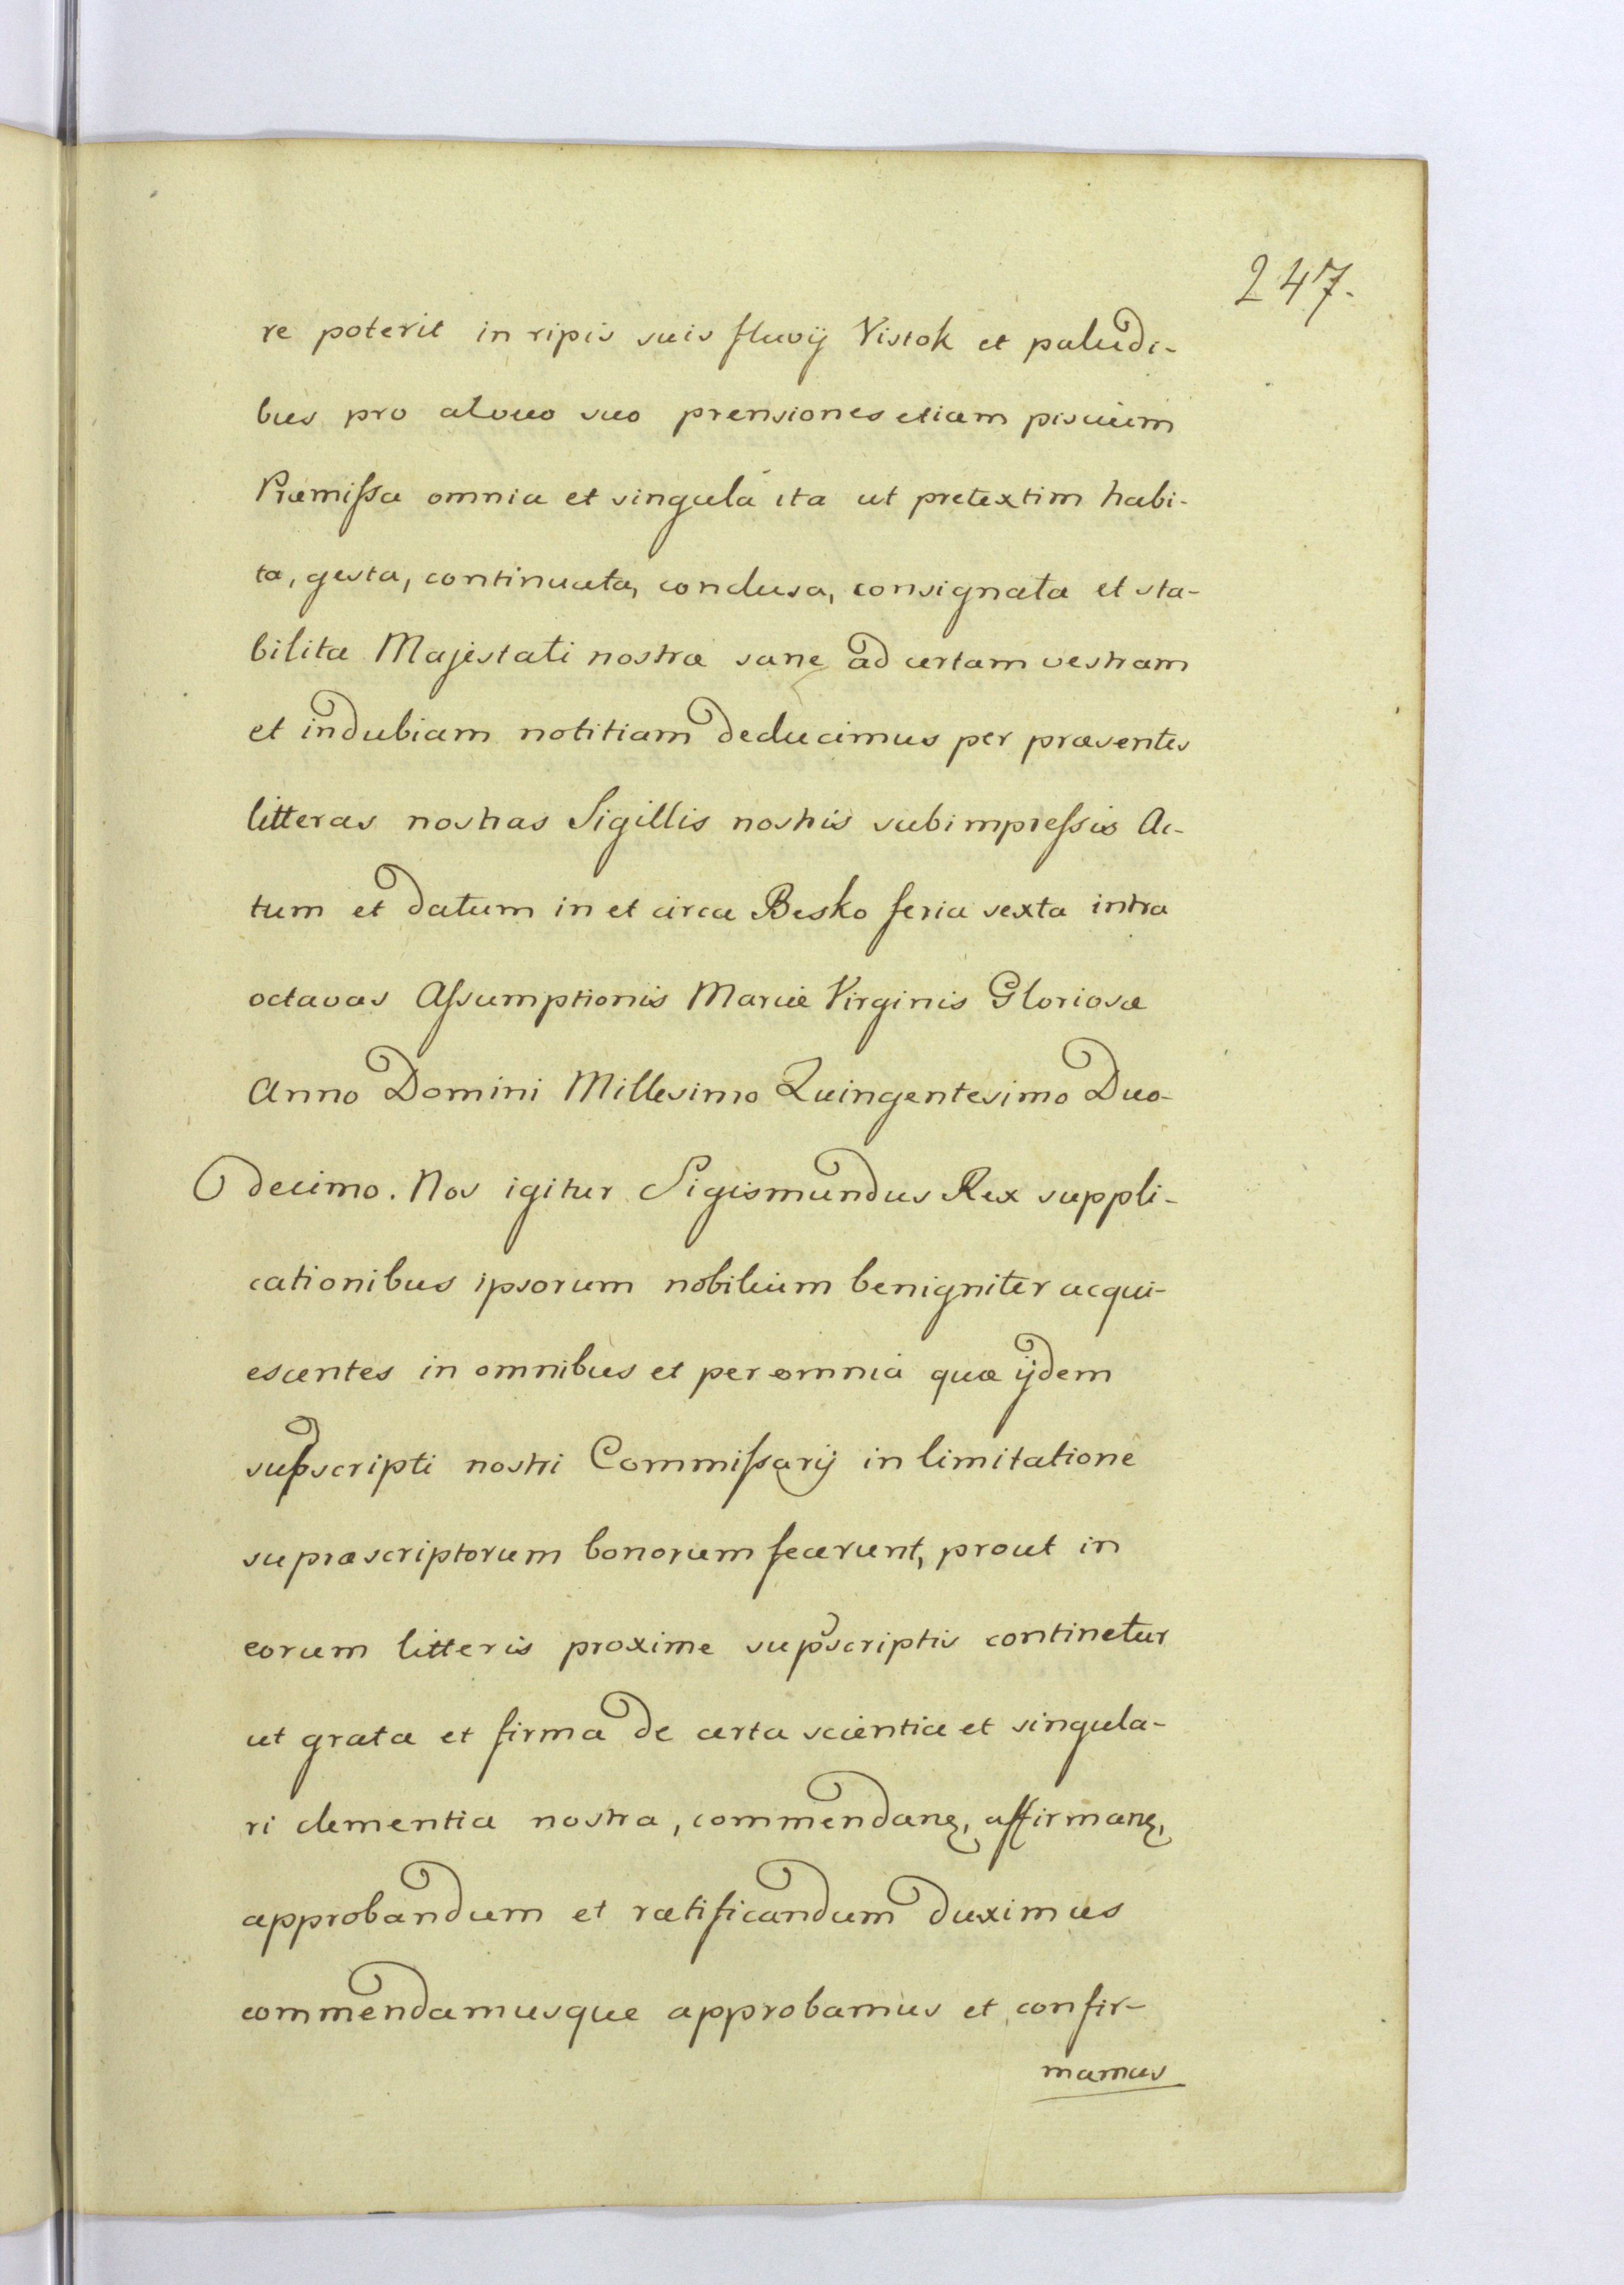 247.
re poterit in ripis suis fluvij Vistok et paludi-
bus pro alveo suo prensiones etiam piscium
Præmißa omnia et singula ita ut pretextim habi-
ta, gesta, continuata, conclusa, consignata et sta-
bilita Majestati nostræ sane ad certam vestram
et indubiam notitiam deducimus per præsentes
litteras nostras Sigillis nostris subimpreßis Ac-
tum et datum in et circa Besko feria sexta intra
octavas Aßumptionis Mariæ Virginis Gloriosæ
Anno Domini Millesimo Quingentesimo Duo-
decimo. Nos igitur Sigismundus Rex suppli-
cationibus ipsorum nobilium benigniter acqui-
escentes in omnibus et per omnia quæ ijdem
supscripti nostri Commißarij in limitatione
supræscriptorum bonorum fecerunt, prout in
eorum litteris proxime supscriptis continetur
ut grata et firma de certa scientia et singula-
ri clementia nostra, commendanꝫ, affirmanꝫ,
approbandum et ratificandum duximus
commendamusque approbamus et confir-
mamus